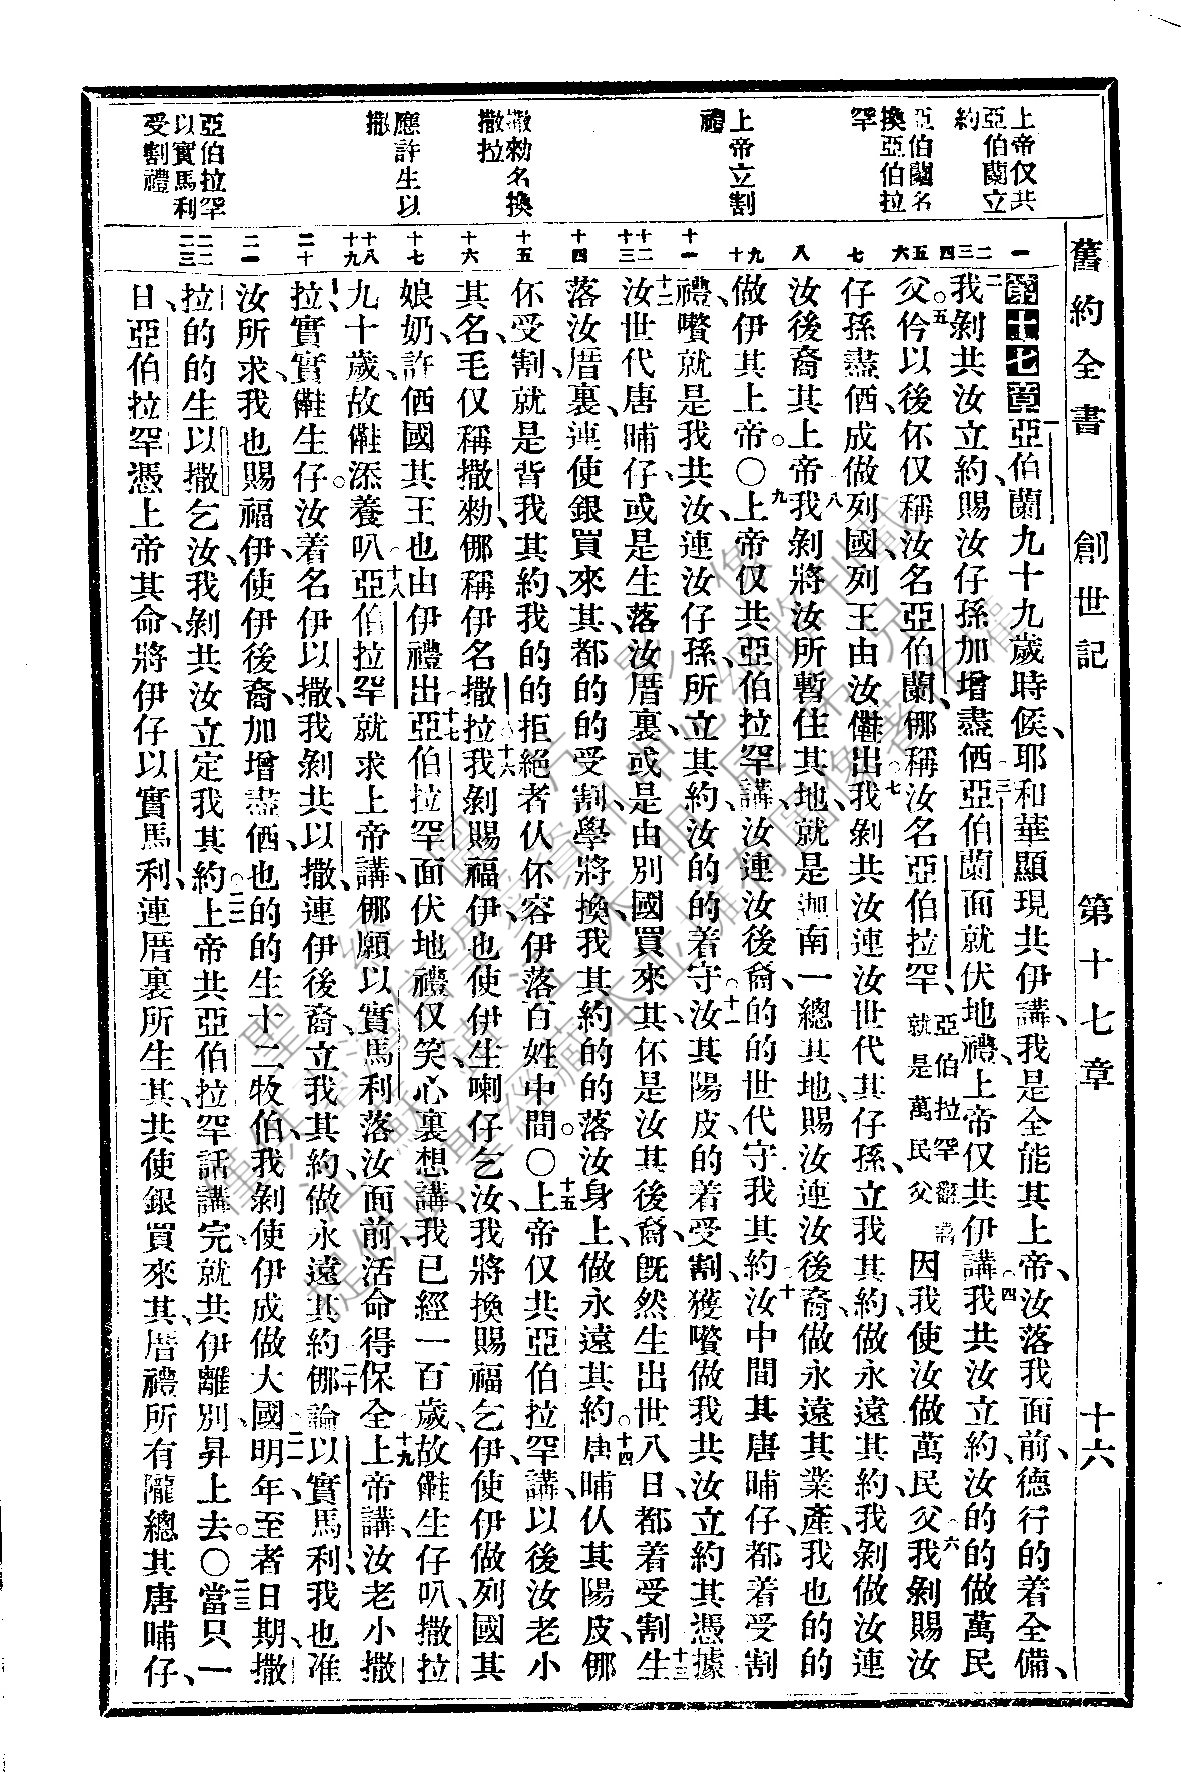 舊約全書　創世記　第十七章　十六
上帝仅共
亞伯蘭立
約
亞伯蘭名
換亞伯拉
罕
上帝立割
禮
撒勑名換
撒拉
應許生以
撒
亞伯拉罕
以實馬利
受割禮
一 二 三 四 五 六 七 八 九 十 十一 十二 十三 十四 十五 十六 十七 十八 十九 二十 二一 二二 二三
第十七章亞伯蘭九十九歲時候、耶和華顯現共伊講、我是全能其上帝、汝落我面前、德行的着全備、
二我剝共汝立約、賜汝仔孫加增盡㑚三亞伯蘭面就伏地禮、上帝仅共伊講、四我共汝立約、汝的的做萬民
父○五伱以後伓仅稱汝名亞伯蘭、㑚稱汝名亞伯拉罕、亞伯拉罕翻講就是萬民父因我使汝做萬民父六我剝賜汝
仔孫盡㑚成做列國、列王由汝㒕出七我剝共汝連汝世代其仔孫、立我其約、做永遠其約、我剝做汝連
汝後裔其上帝八我剝將汝所暫住其地、就是迦南一總其地、賜汝連汝後裔、做永遠其業產、我也的的
做伊其上帝○○九上帝仅共亞伯拉罕講、汝連汝後裔、的的世代守我其約十汝中間其唐晡仔、都着受割
禮、嚽就是我共汝連汝仔孫、所立其約、汝的的着守十一汝其陽皮、的着受割、獲嚽做我共汝立約其憑據
十二汝世代唐晡仔、或是生落汝厝裏、或是由別國買來其、伓是汝其後裔、旣然生出世八日、都着受割十三生
落汝厝裏、連使銀買來其、都的的受割、學將換我其約的的落汝身上、做永遠其約十四唐晡仈其陽皮、㑚
伓受割、就是背我其約、我的的拒絕者仈、伓容伊落百姓中間○○十五上帝仅共亞伯拉罕講、以後汝老小
其名、毛仅稱撒勑、㑚稱伊名撒拉十六我剝賜福伊、也使伊生喇仔乞汝、我將換賜福乞伊、使伊做列國其
娘奶、許㑚國其王也由伊禮出十七亞伯拉罕面伏地禮、仅笑、心裏想講、我已經一百歲、故㒕生仔叭、撒拉
九十歲、故㒕添養叭十八亞伯拉罕就求上帝講、㑚願以實馬利落汝面前活命得保全十九上帝講、汝老小撒
拉、實實㒕生仔、汝着名伊以撒、我剝共以撒、連伊後裔、立我其約、做永遠其約二十㑚論以實馬利、我也准
汝所求、我也賜福伊、使伊後裔加增盡㑚、也的的生十二牧伯、我剝使伊成做大國二一明年至者日期、撒
拉的的生以撒乞汝、我剝共汝立定我其約○二二上帝共亞伯拉罕話講完、就共伊離別昇上去○○二三當只一
日、亞伯拉罕憑上帝其命、將伊仔以實馬利、連厝裏所生其、共使銀買來其、厝禮所有隴總其唐晡仔、